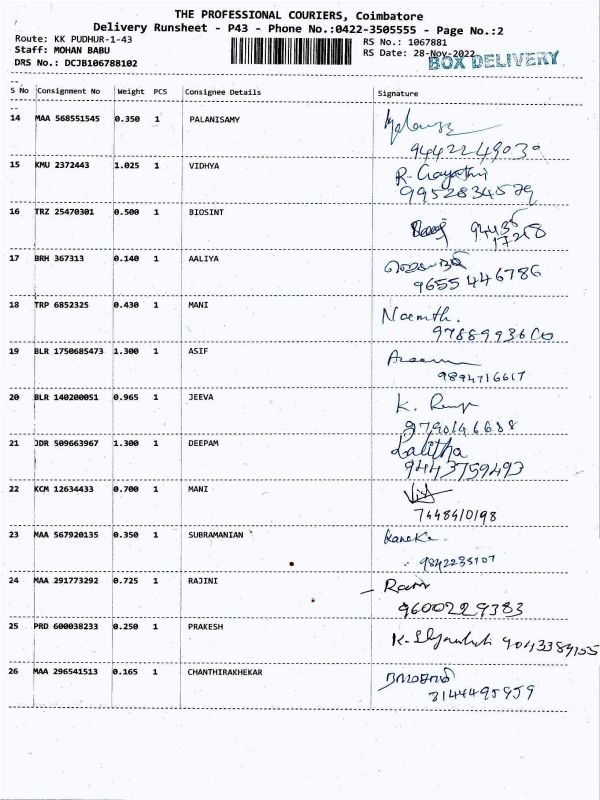 THE PROFESSIONAL COURIERS, Coimbatore
Delivery Runsheet - P43 - Phone No.:0422-3505555 - Page No.:2
Route: KK PUDHUR-1-43 RS No.: 1067881
Staff: MOHAN BABU RS Date: 28-Nov-2022
DRS No.: DCJB106788102 BOX DELIVERY
S No Consignment No Weight PCS Consignee Details Signature
14 MAA 568551545 0.350 1 PALANISAMY
15 KMU 2372443 1.025 1 VIDHYA R. Gayathri
9952834579
16 TRZ 25470301 0.500 1 BIOSINT
94435
17218
17 BRH 367313 0.140 1 AALIYA
9655446786
18 TRP 6852325 0.430 1 MANI
19 BLR 1750685473 1.300 1 ASIF
9894716617
20 BLR 140200051 0.965 1 JEEVA K.
9790146688
21 JDR 509663967 1.300 1 DEEPAM Lalitha
9443759493
22 KCM 12634433 0.700 1 MANI
7448410198
23 MAA 567920135 0.350 1 SUBRAMANIAN
9842235107
24 MAA 291773292 0.725 1 RAJINI
9600229383
25 PRD 600038233 0.250 1 PRAKESH K.
26 MAA 296541513 0.165 1 CHANTHIRAKHEKAR